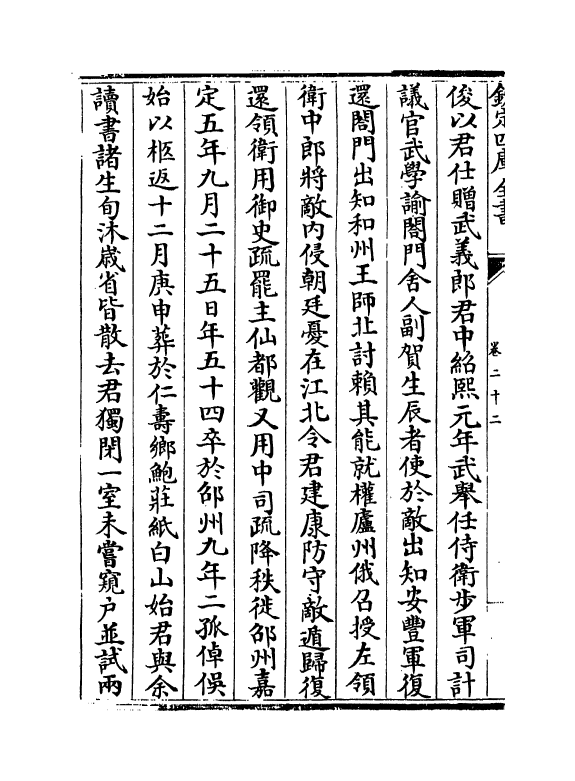 欽定四庫全書
卷二十二
俊以君仕贈武義郎君中紹熙元年武舉任侍衛步軍司計
議官武學諭閤門舍人副賀生辰者使於敵出知安豐軍復
還閤門出知和州王師北討賴其能就權廬州俄召授左領
衛中郎將敵内侵朝廷憂在江北令君建康防守敵遁歸復
還領衛用御史疏罷主仙都觀又用中司疏降秩徙邵州嘉
定五年九月二十五日年五十四卒於邵州九年二孤倬俁
始以柩返十二月庚申葬於仁壽鄉鮑莊紙白山始君與余
讀書諸生旬沐歲省皆散去君獨閉一室未嘗窺户並試兩